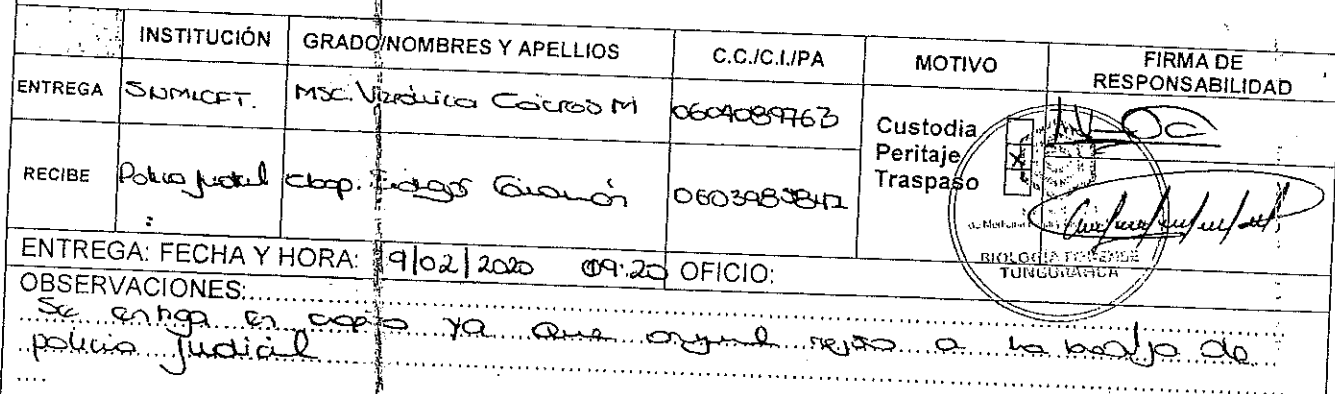 INSTITUCIÓN GRADO/NOMBRES Y APELLIOS C.C./C.I./PA MOTIVO FIRMA DE RESPONSABILIDAD
ENTREGA SNMLCFT. MSC. Verónica Cáceres M 0604089763
Custodia
Peritaje X
Traspaso
RECIBE Policia Judicial Cbop. Edgar
de Medicina
BIOLOGÍA FORENSE
TUNGURAHUA
ENTREGA: FECHA Y HORA: 19/02/2020 09:20 OFICIO:
OBSERVACIONES:
Se entrega en copia ya que original regreso a la bodega de
policia Judicial